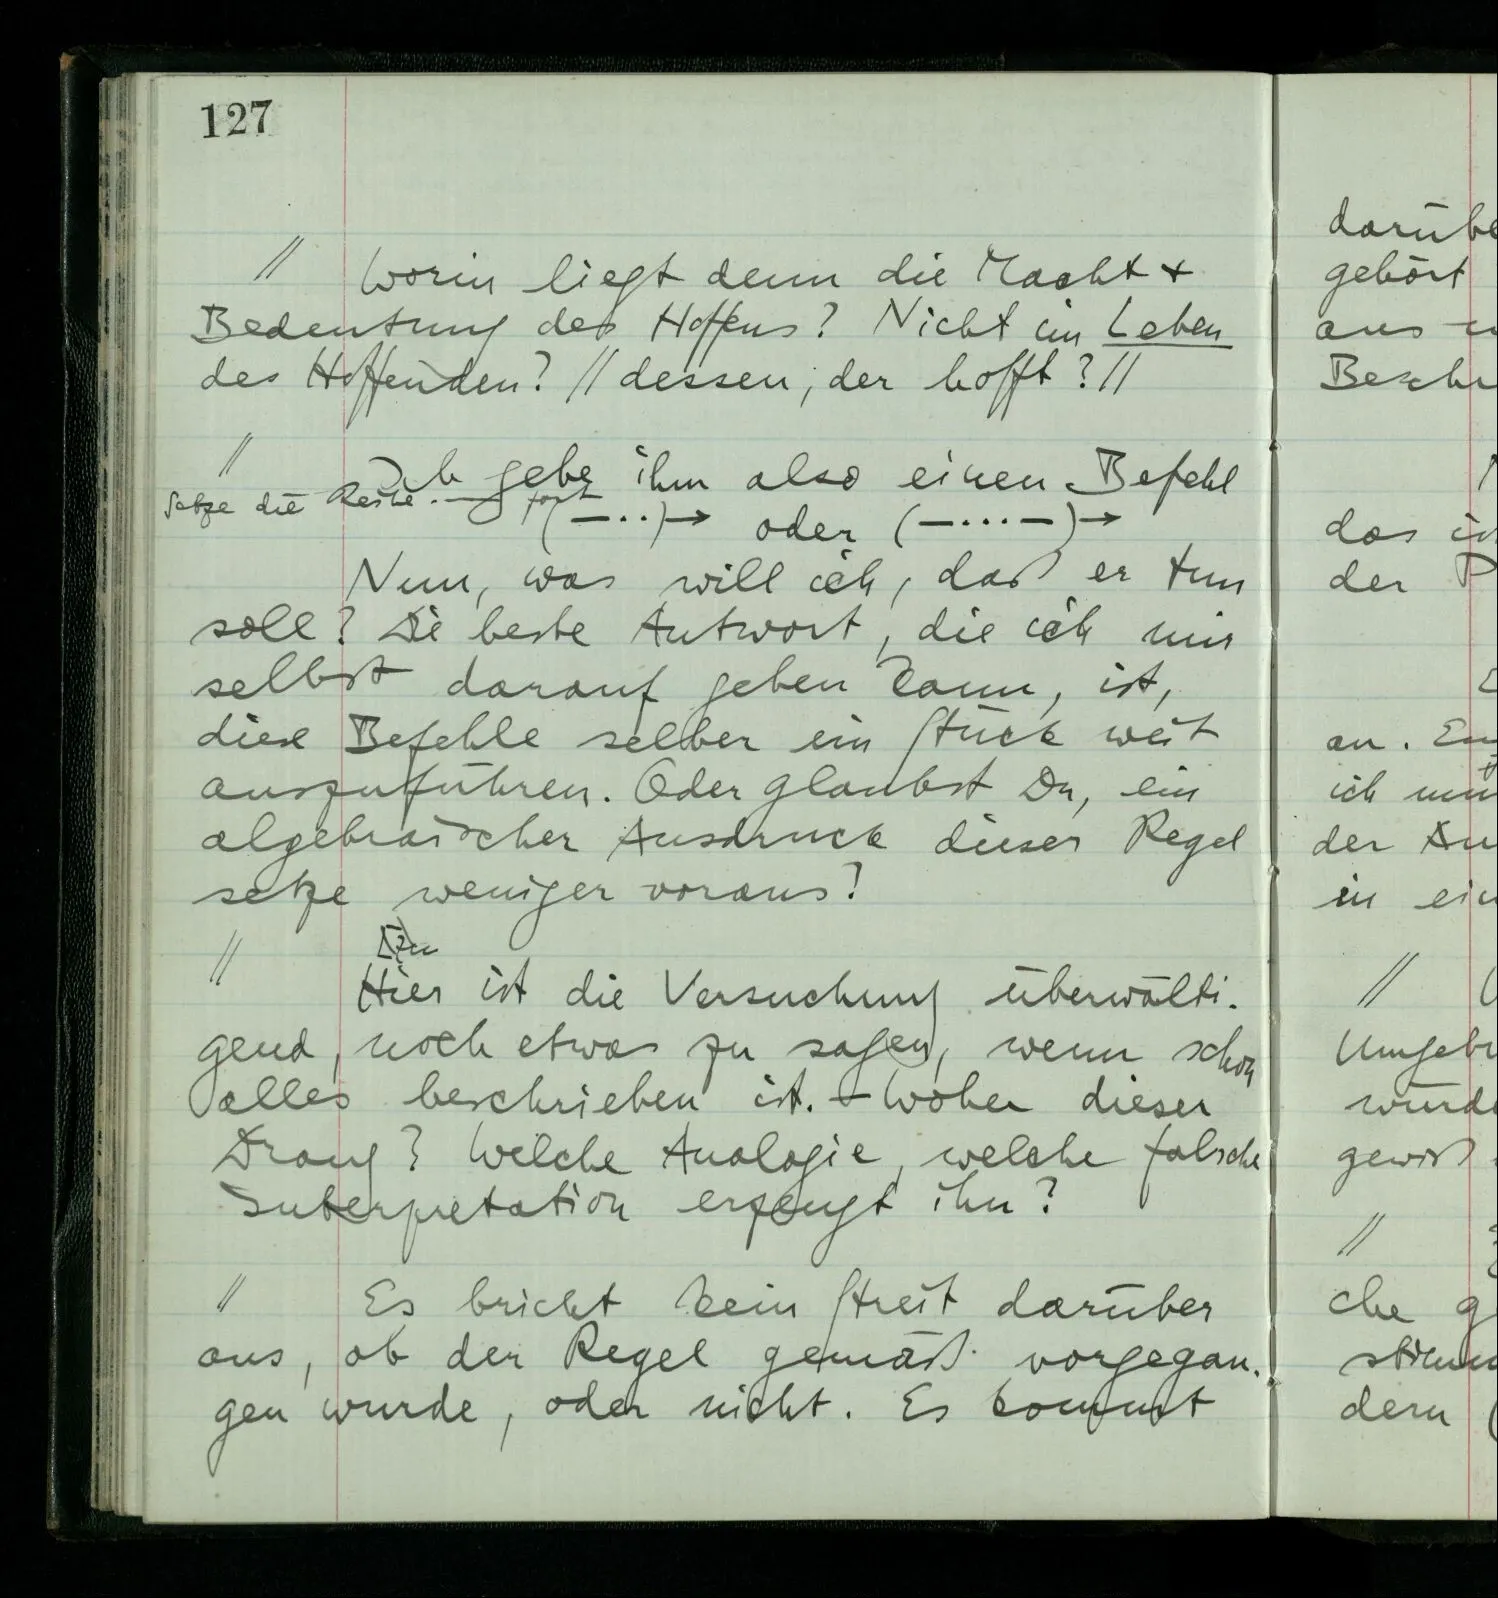 127
// Worin liegt denn die Macht +
Bedeutung des Hoffens? Nicht im Leben
des Hoffenden? // dessen, der hofft? //
// Ich gebe ihm also einen Befehl
Setze die Reihe . — fort
(—··)→ oder (—···—)→
Nun, was will ich, daß er tun
soll? Die beste Antwort, die ich mir
selbst darauf geben kann, ist,
diese Befehle selber ein Stück weit
auszuführen. Oder glaubst Du, ein
algebraischer Ausdruck dieser Regel
setze weniger voraus?
//
Hier ist die Versuchung überwälti-
gend, noch etwas zu sagen, wenn schon
alles beschrieben ist. – Woher dieser
Drang? Welche Analogie, welche falsche
Interpretation erzeugt ihn?
// Es bricht kein Streit darüber
aus, ob der Regel gemäß vorgegan-
gen wurde, oder nicht. Es kommt
gehört
aus
das
der
an.
ich
der
in
//
gewiß
//
che
dern